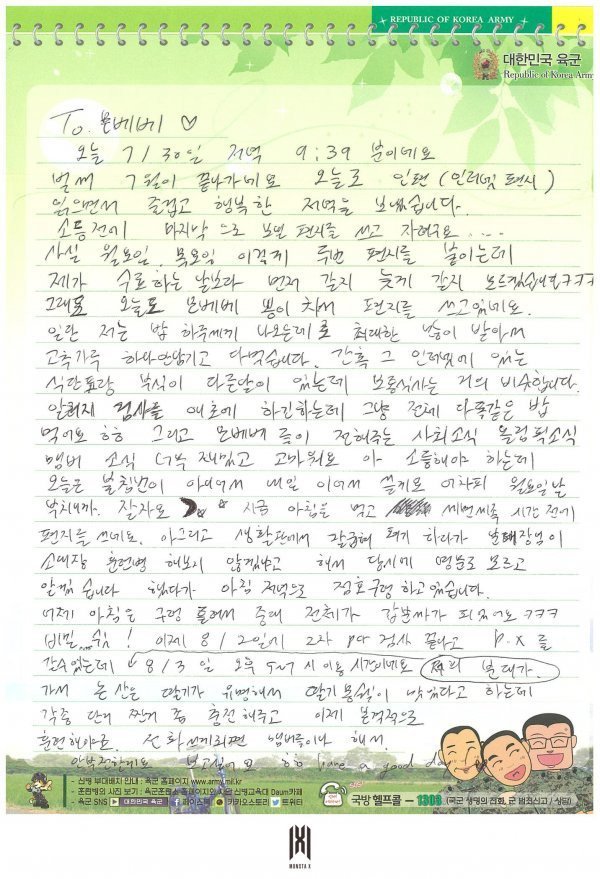 REPUBLIC OF KOREA ARMY
대한민국 육군
Republic of Korea Army
To. 몬베베 ♡
오늘 7/30일 저녁 9:39 분이네요
벌써 7월이 끝나가네요 오늘로 인편 (인터넷 편지)
읽으면서 즐겁고 행복한 저녁을 보냈습니다.
소등전에 마지막으로 보낼 편지를 쓰고 자려구요....
사실 월요일, 목요일 이렇게 두번 편지를 붙이는데
제가 수료하는 날보다 먼저 갈지 늦게 갈지 모르겠습니다ㅋㅋㅋ
그래도 오늘도 몬베베 뽕이 차서 편지를 쓰고있네요.
일단 저는 밥 하루세끼 나오는데 최대한 많이 받아서
고춧가루 하나안남기고 다먹습니다. 간혹 그 인터넷에 있는
식단표랑 부식이 다른날이 있는데 보통식사는 거의 비슷합니다.
알러지 검사를 애초에 하긴하는데 그냥 전체 다똑같은 밥
먹어요 ㅎㅎ 그리고 몬베베들이 전해주는 사회소식 올림픽소식
멤버 소식 너무 재밌고 고마워요 아 소등해야 하는데
오늘은 불침번이 아니여서 내일 이어서 쓸게요 어차피 월요일날
부치니까. 잘자요 지금 아침을 먹고 세번째 시간 전에
편지를 쓰네요. 아 그리고 생활관에서 하다가 분대장님이
소대장 훈련병 해보지 않겠냐고 해서 당시에 영문도 모르고
알겠습니다 했다가 아침 저녁으로 점호구령 하고있습니다.
어제 아침은 구령 틀려서 중대 전체가 갑분싸가 되었어요 ㅋㅋㅋ
비밀..쉿! 이제 8/2일에 2차 pcr 검사 끝나고 P.X 를
갈수있는데 8/3일 오후 5시 이용시간이네요
가서 논산은 딸기가 유명해서 딸기몽쉘이 맛있다고 하는데
각종 단거 짠거 좀 충전해주고 이제 본격적으로
훈련해야죠. 전화쓰게되면 멤버들이랑 해서.
안부전할게요 보고싶어요 ㅎㅎ have a good day
- 신병 부대배치 안내 : 육군 홈페이지 www.army.mil.kr
- 훈련병의 사진 보기 : 육군훈련소 홈페이지와 신병교육대 Daum카페
- 육군 SNS 대한민국 육군 페이스북 카카오스토리 트위터
국방 헬프콜 - 1303 (국군 생명의 전화, 군 범죄신고 / 상담)
MONSTA X